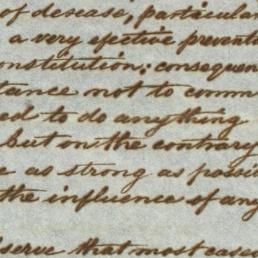 of desease, particular
a very efective preventi
onstitution; consequen
tance not to comm
ed to do anything
but on the contrary
e as strong as possi
the influence of any
serve that most cases